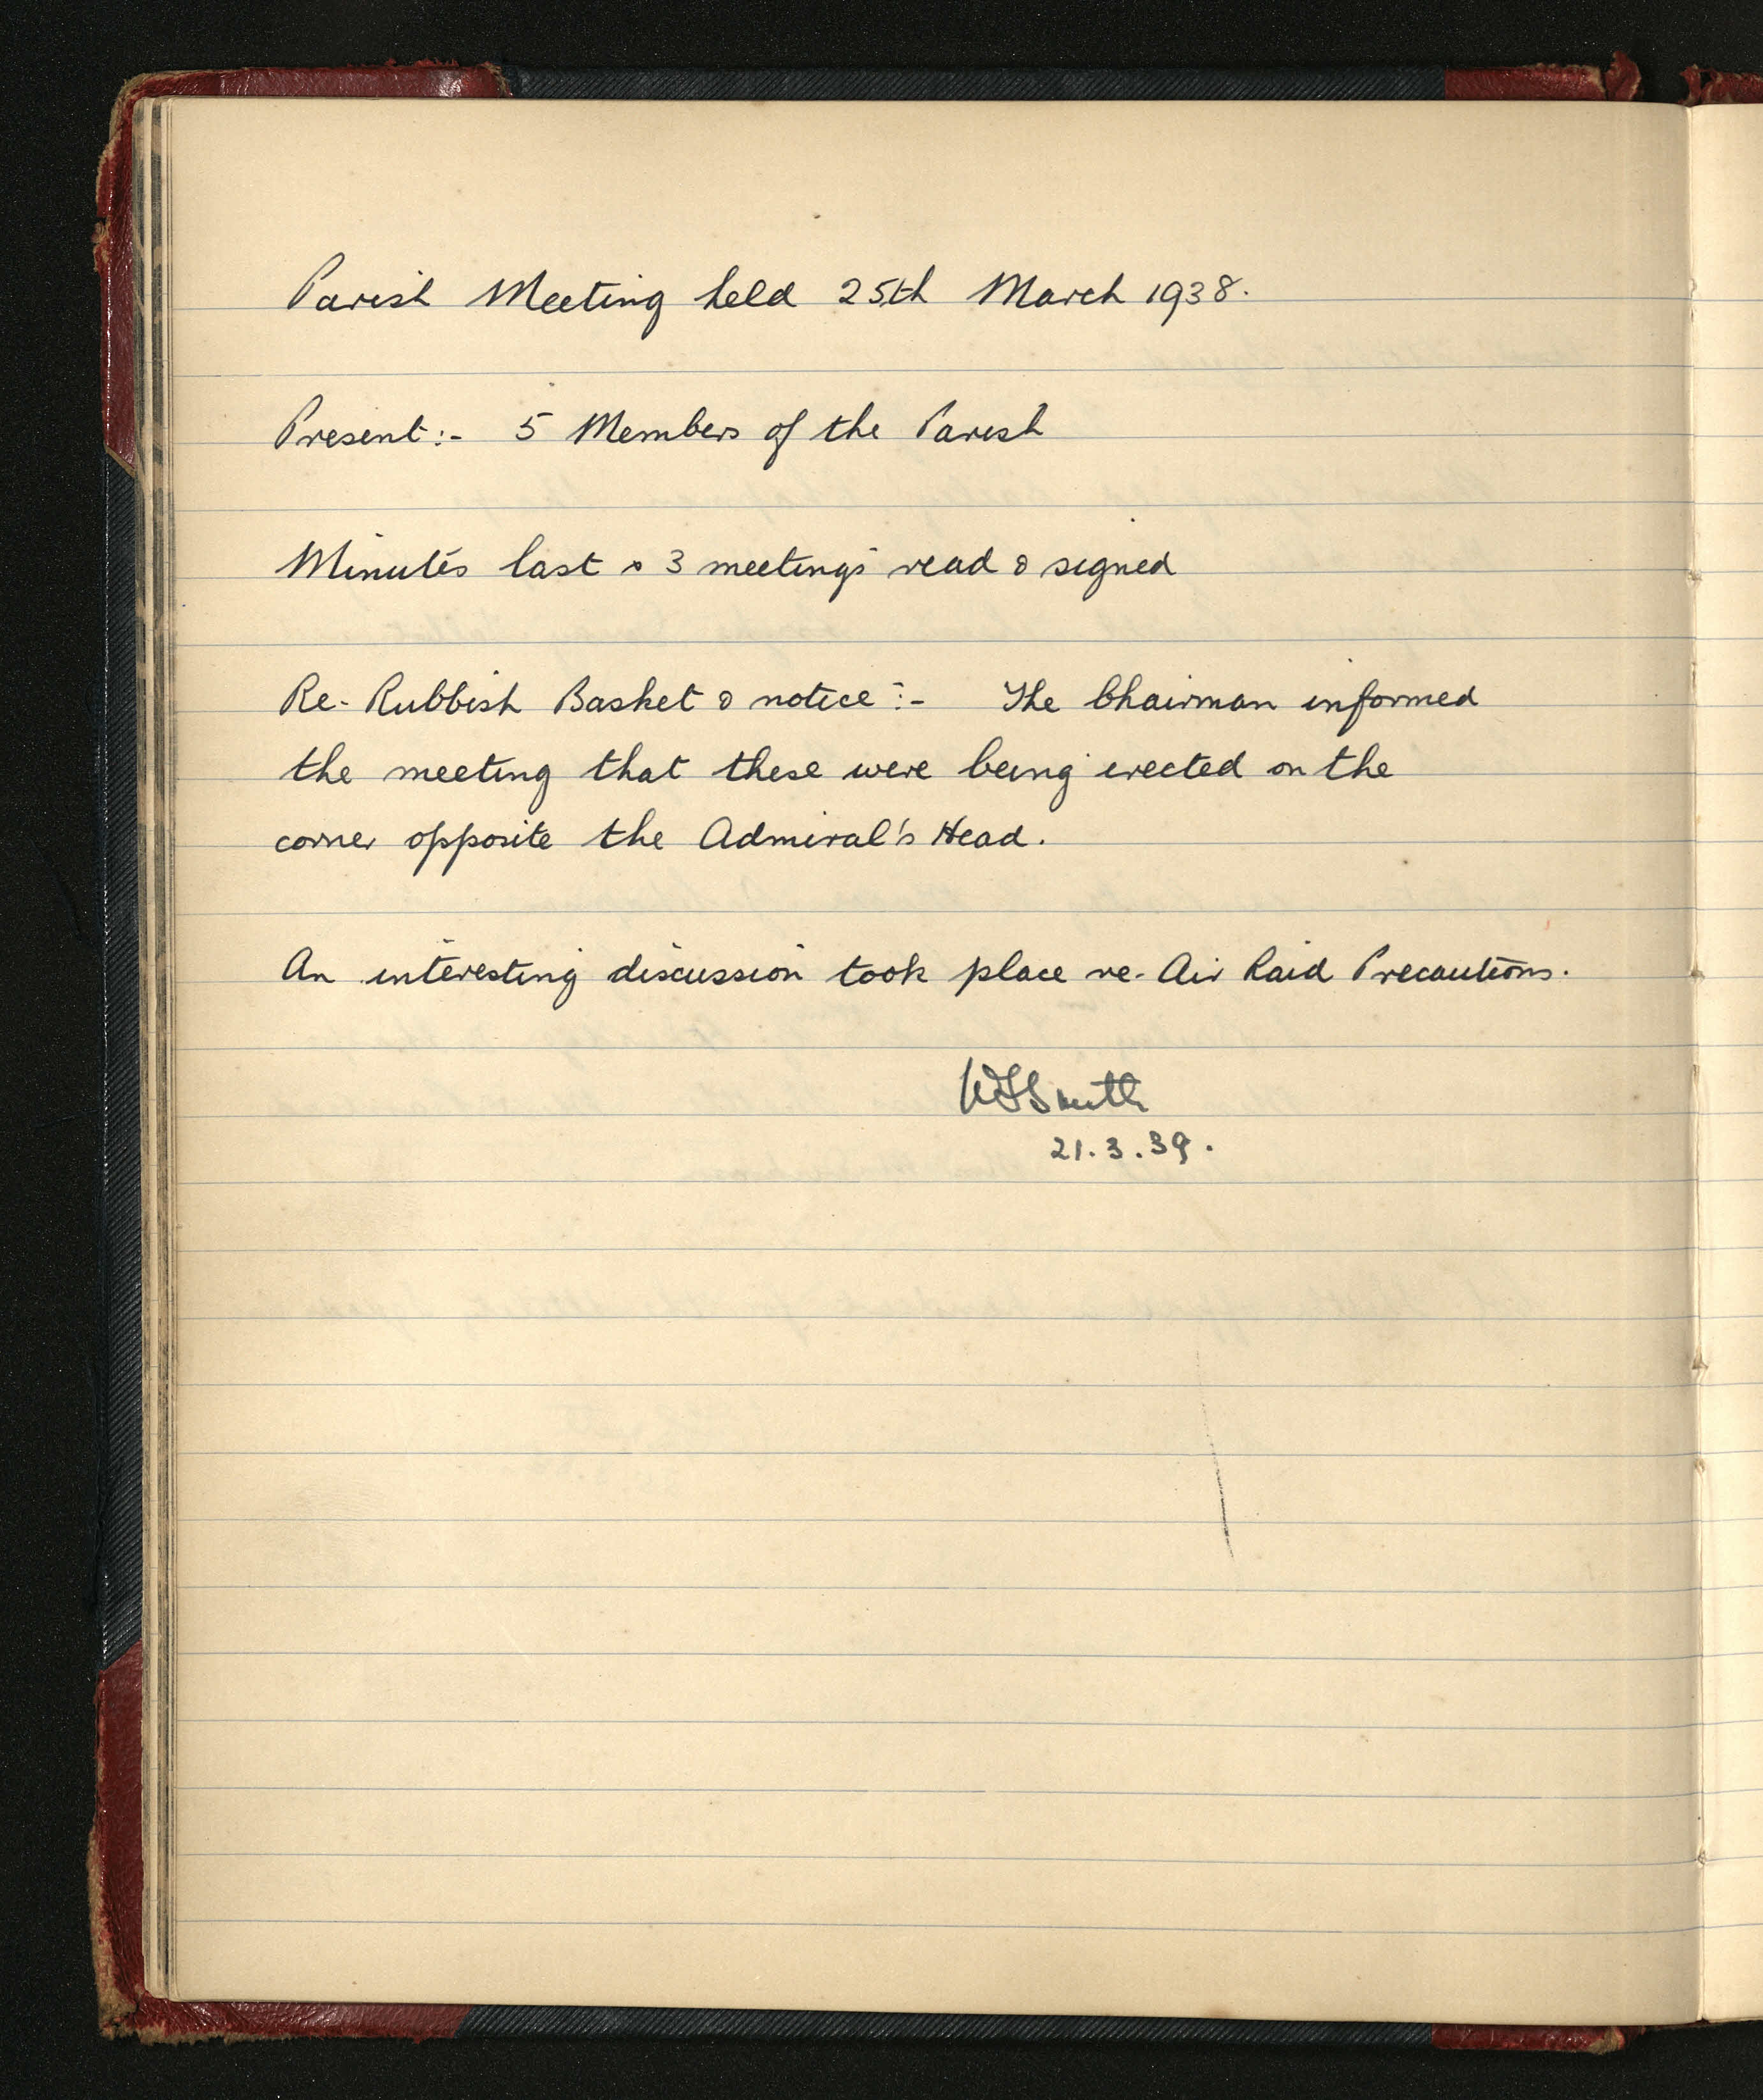 Parish Meeting held 25th March 1938.
Present:- 5 Members of the Parish
Minutes last & 3 meetings read & signed
Re- Rubbish Basket & notice :- The Chairman informed
the meeting that these were being erected on the
corner opposite the Admiral's Head.
An interesting discussion took place re- Air Raid Precautions.
Smith
21.3.39.